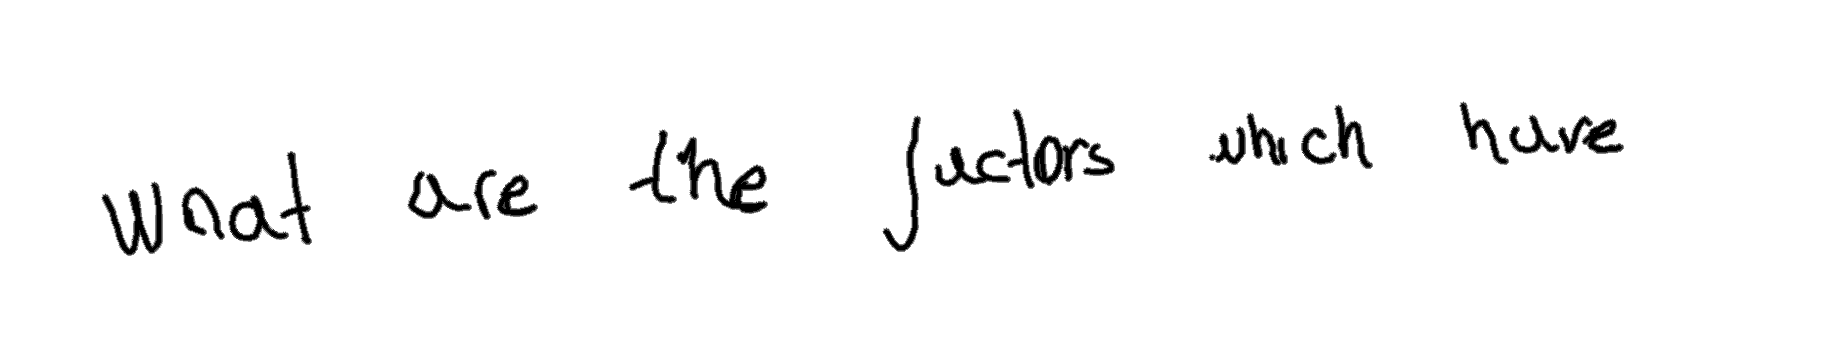 What are the factors which have